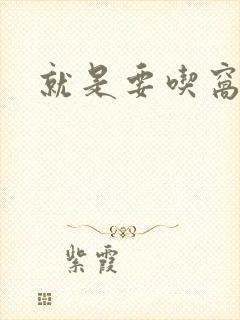 就是要喫窩
紫霞